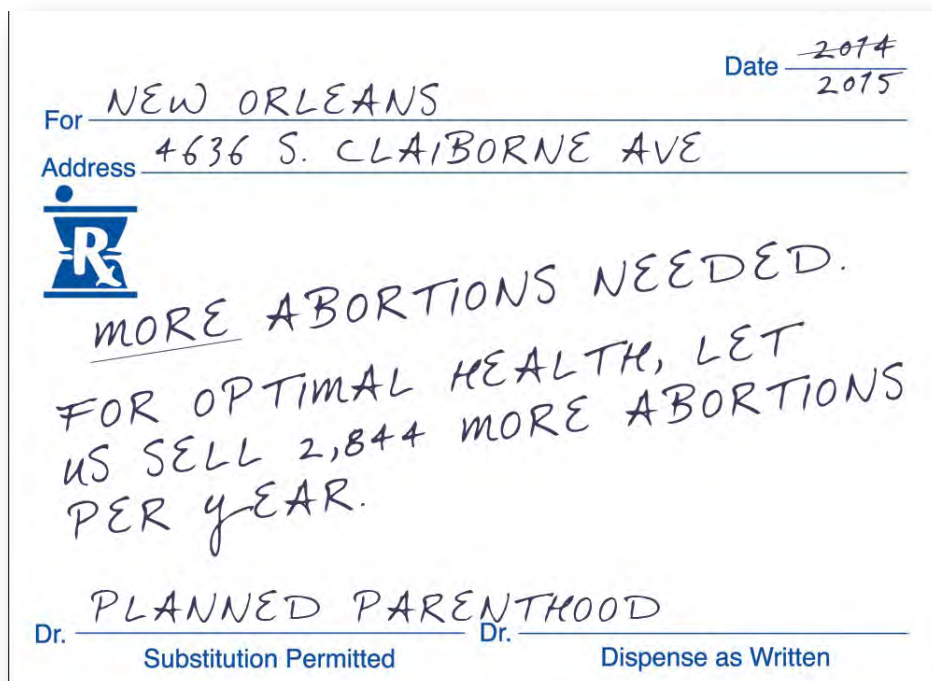 Date 2014
2015
For NEW ORLEANS
Address 4636 S. CLAIBORNE AVE
R
MORE ABORTIONS NEEDED.
FOR OPTIMAL HEALTH, LET
US SELL 2,844 MORE ABORTIONS
PER YEAR.
Dr. PLANNED PARENTHOOD Dr.
Substitution Permitted Dispense as Written